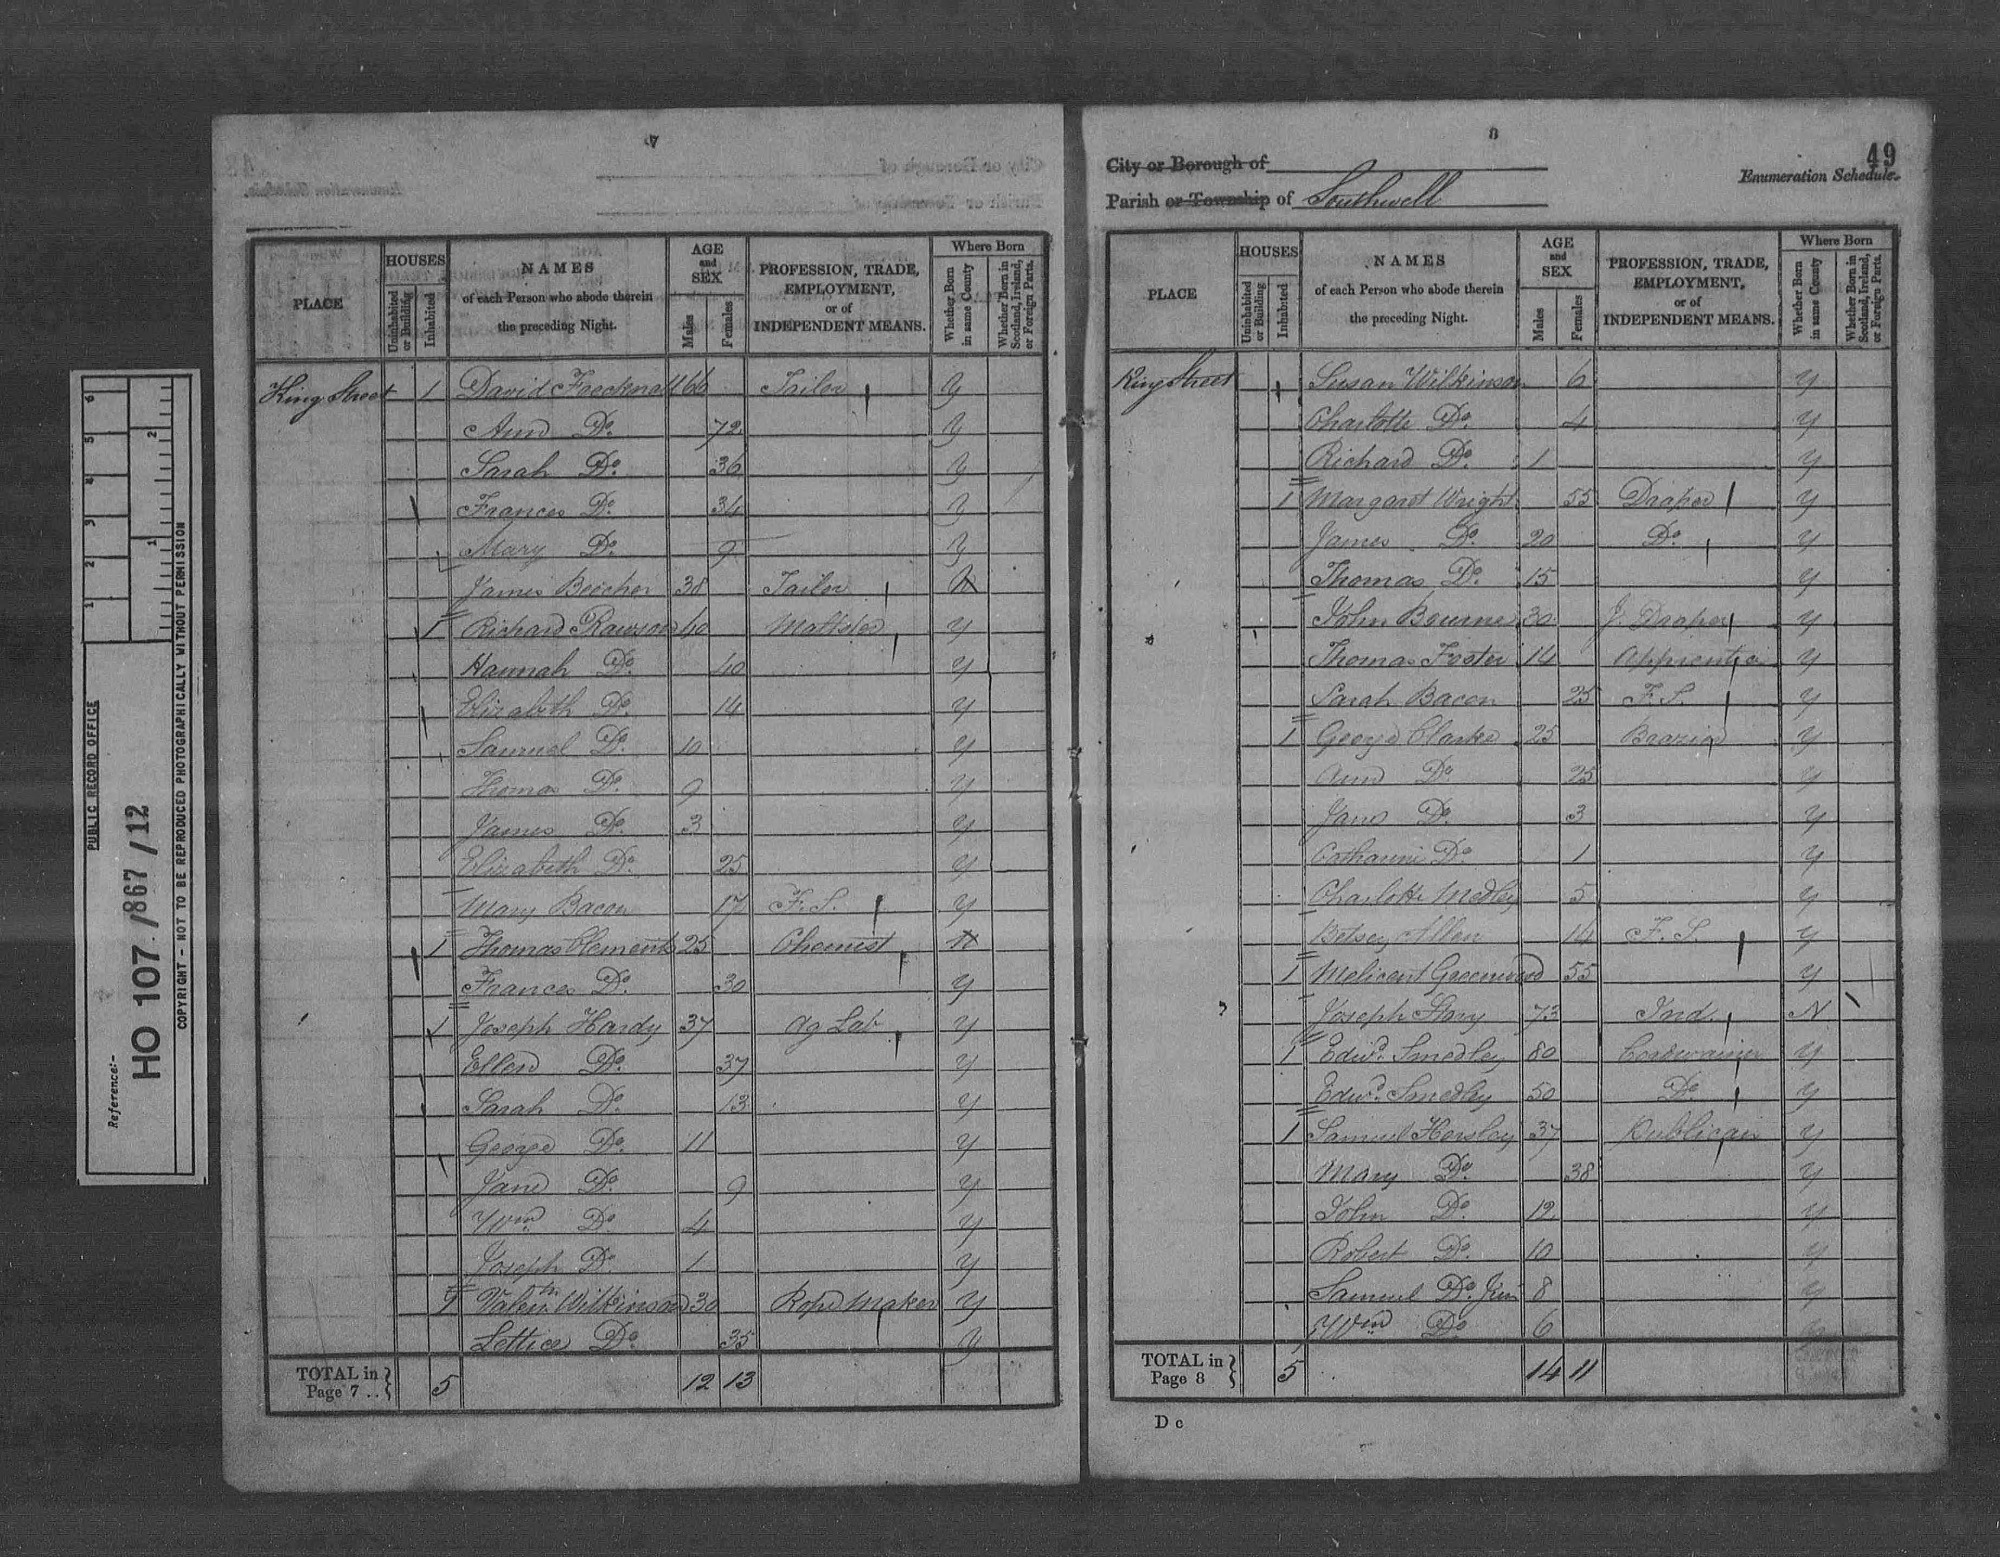 PUBLIC RECORD OFFICE
Reference:-
HO 107 / 867 / 12
COPYRIGHT - NOT TO BE REPRODUCED PHOTOGRAPHICALLY WITHOUT PERMISSION
1 2 3 4 5 6
1 2
7
PLACE
HOUSES
Uninhabited or Building
Inhabited
NAMES
of each Person who abode therein
the preceding Night.
AGE and SEX
Males
Females
PROFESSION, TRADE,
EMPLOYMENT,
or of
INDEPENDENT MEANS.
Where Born
Whether Born in same County
Whether Born in Scotland, Ireland, or Foreign Parts.
King Street 1 David 66 Tailor Y
Ann Do. 72 Y
Sarah Do. 36 Y
Frances Do. 34 Y
Mary Do. 9 Y
James Beecher 38 Tailor N
1 Richard Rawson 40 Maltster Y
Hannah Do. 40 Y
Elizabeth Do. 14 Y
Samuel Do. 10 Y
Thomas Do. 9 Y
James Do. 3 Y
Elizabeth Do. 25 Y
Mary Bacon 17 F.S. Y
1 Thomas Clements 25 Chemist N
Frances Do. 30 Y
1 Joseph Hardy 37 Ag Lab Y
Ellen Do. 37 Y
Sarah Do. 13 Y
George Do. 11 Y
Jane Do. 9 Y
Wm Do. 4 Y
Joseph Do. 1 Y
1 Valentn Wilkinson 30 Rope Maker Y
Lettice Do. 35 Y
TOTAL in Page 7 .. } 5 12 13
8
49
City or Borough of
Enumeration Schedule.
Parish or Township of Southwell
PLACE
HOUSES
Uninhabited or Building
Inhabited
NAMES
of each Person who abode therein
the preceding Night.
AGE and SEX
Males
Females
PROFESSION, TRADE,
EMPLOYMENT,
or of
INDEPENDENT MEANS.
Where Born
Whether Born in same County
Whether Born in Scotland, Ireland, or Foreign Parts.
King Street Susan Wilkinson 6 Y
Charlotte Do. 4 Y
Richard Do. 1 Y
1 Margaret Wright 55 Draper Y
James Do. 20 Do. Y
Thomas Do. 15 Y
John Bourne 30 J. Draper Y
Thomas Foster 14 Apprentice Y
Sarah Bacon 25 F.S. Y
1 George Clarke 25 Brazier Y
Ann Do. 25 Y
Jane Do. 3 Y
Catharine Do. 1 Y
Charlotte Medley 5 Y
Betsey Allen 14 F.S. Y
1 Melicent Greenwood 55 Y
Joseph Story 73 Ind. N
1 Edwd. Smedley 80 Cordwainer Y
Edwd. Smedley 50 Do. Y
1 Samuel Horsley 37 Publican Y
Mary Do. 38 Y
John Do. 12 Y
Robert Do. 10 Y
Samuel Do. Jun 8 Y
Wm Do. 6 Y
TOTAL in Page 8 } 5 14 11
D c